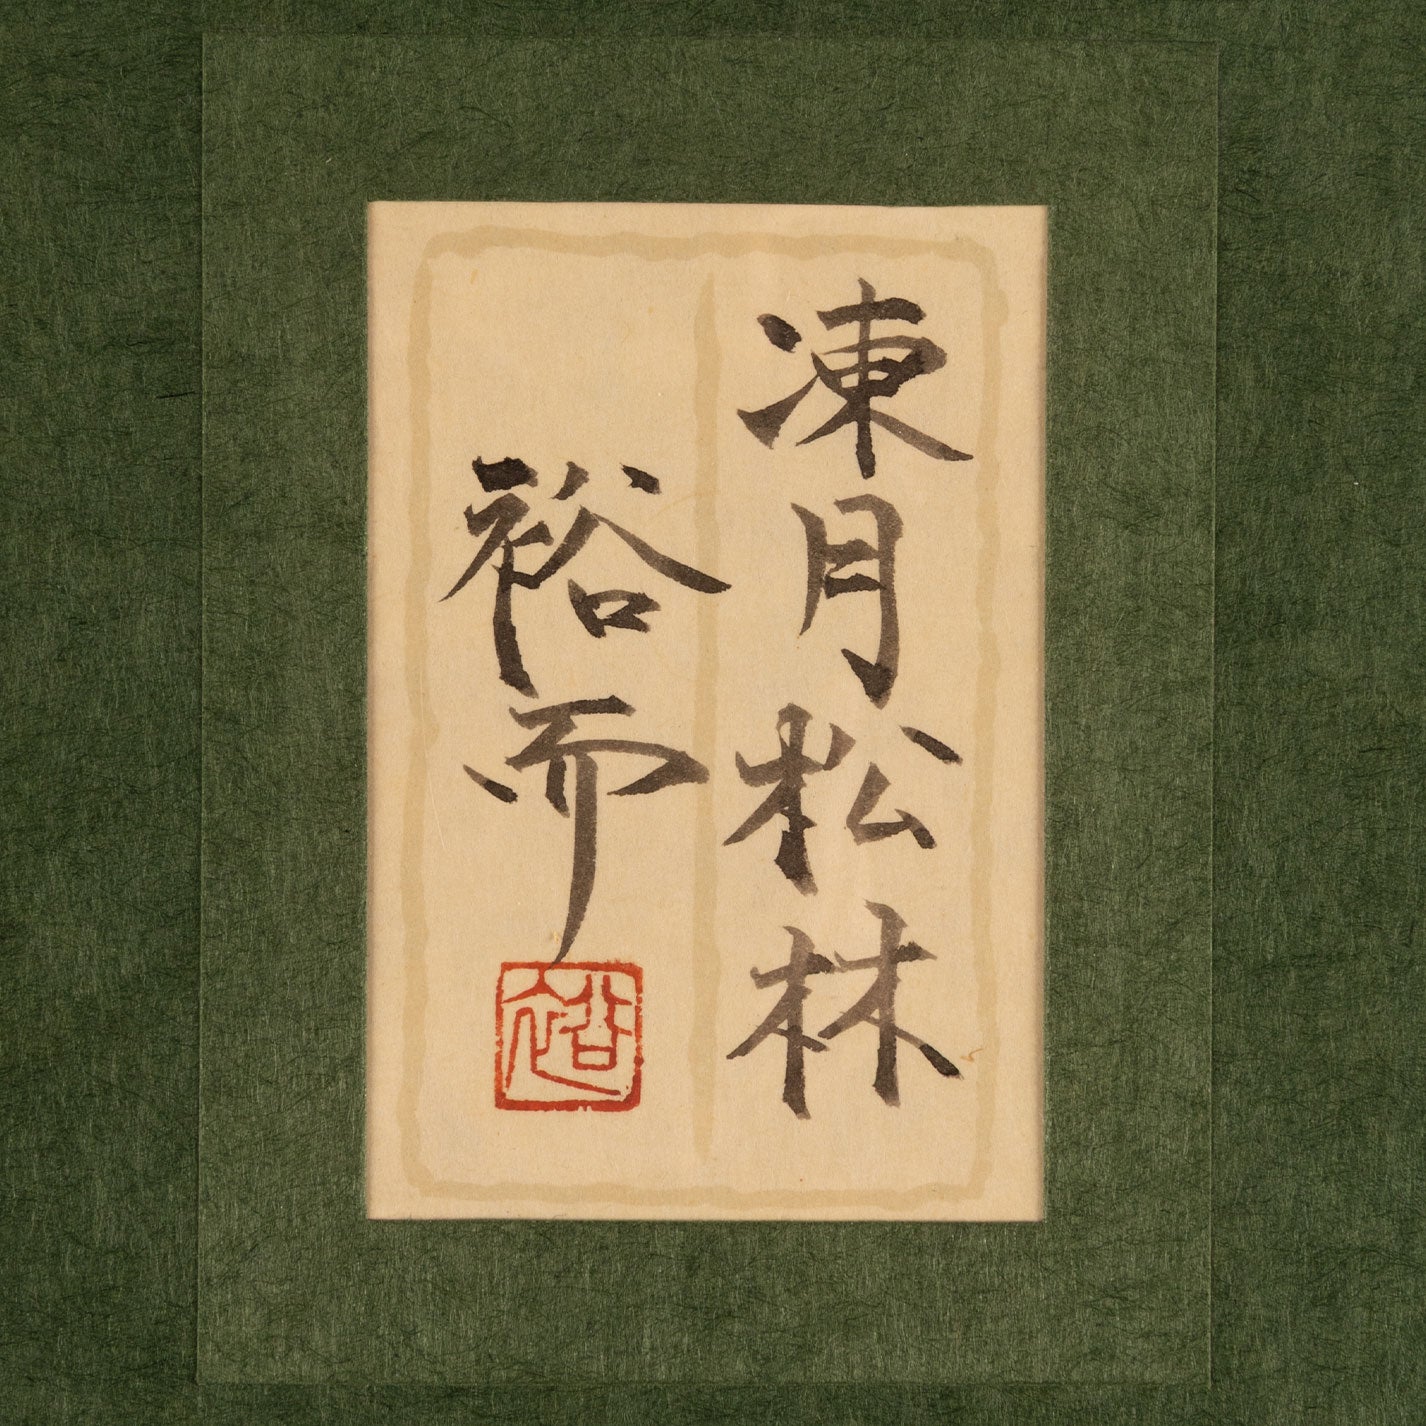 凍月松林
裕而
裕